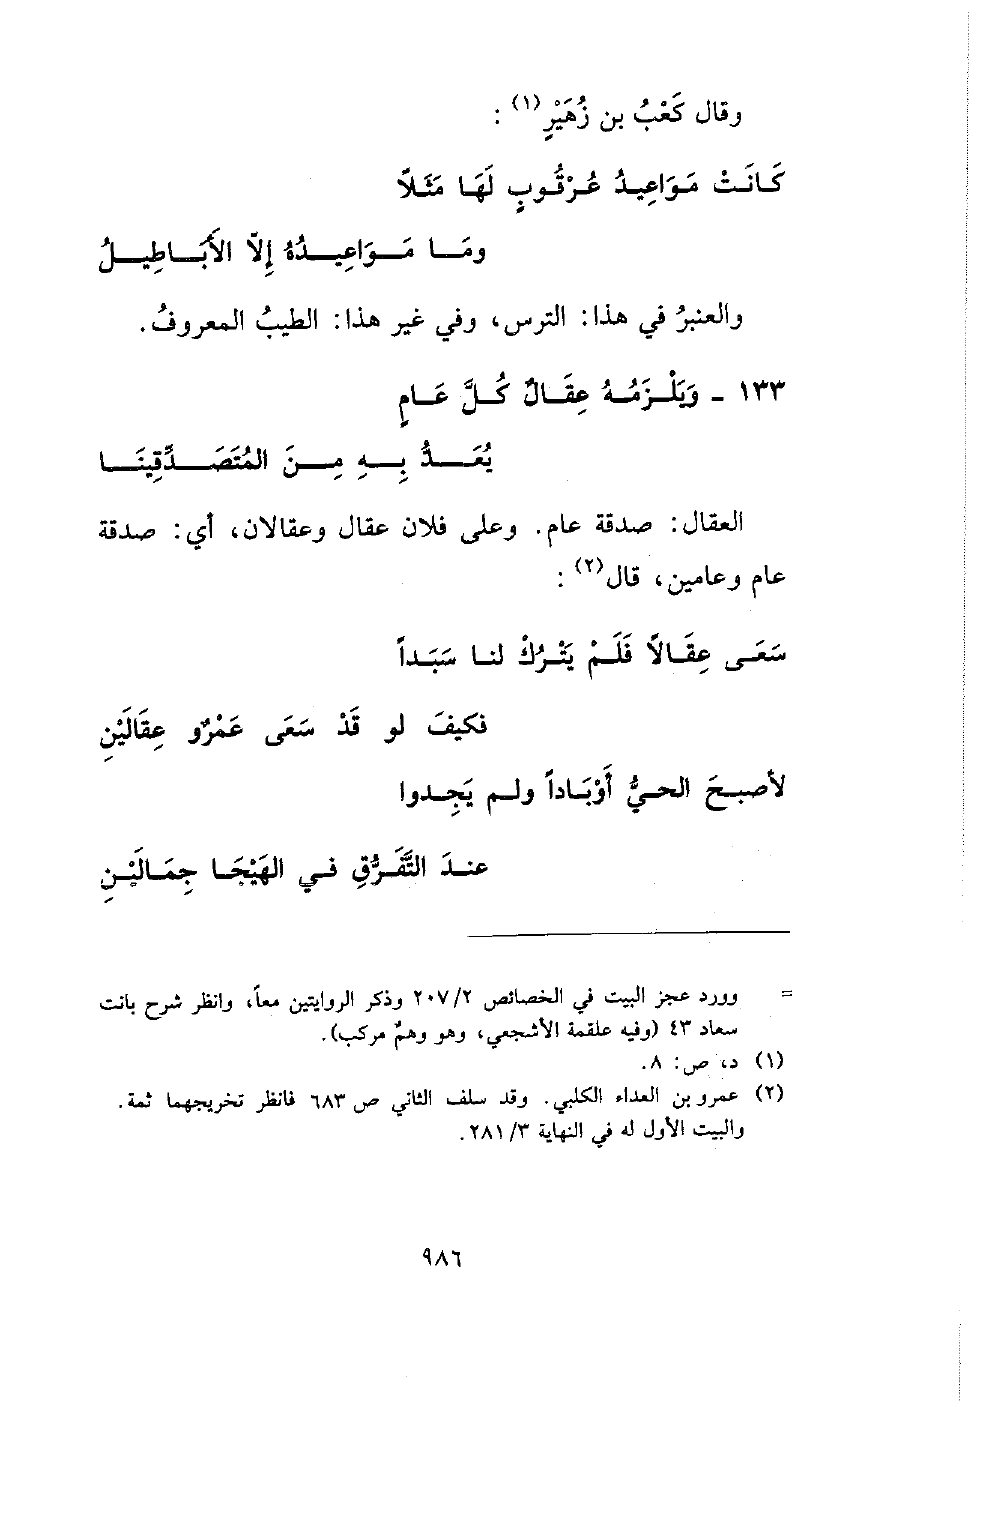 وقال كَعْبُ بن زُهَيْرٍ(١) :
كَانَتْ مَوَاعِيدُ عُرْقُوبٍ لَهَا مَثَلاً
ومَا مَوَاعِيدُهُ إِلاّ الأَبَاطِيلُ
والعنبرُ في هذا: الترس، وفي غير هذا: الطيبُ المعروفُ.
١٣٣ - وَيَلْزَمُهُ عِقَالٌ كُلَّ عَامٍ
يُعَدُّ بِهِ مِنَ المُتَصَدِّقِينَا
العقال: صدقة عام. وعلى فلان عقال وعقالان، أي: صدقة
عام وعامين، قال(٢) :
سَعَى عِقَالاً فَلَمْ يَتْرُكْ لنا سَبَداً
فكيفَ لو قَدْ سَعَى عَمْرٌو عِقَالَيْنِ
لأصبحَ الحيُّ أَوْبَاداً ولم يَجِدوا
عندَ التَّفَرُّقِ في الهَيْجَا جِمَالَيْنِ
= وورد عجز البيت في الخصائص ٢٠٧/٢ وذكر الروايتين معاً، وانظر شرح بانت
سعاد ٤٣ (وفيه علقمة الأشجعي، وهو وهمٌ مركب).
(١) د، ص: ٨.
(٢) عمرو بن العداء الكلبي. وقد سلف الثاني ص ٦٨٣ فانظر تخريجهما ثمة.
والبيت الأول له في النهاية ٢٨١/٣.
٩٨٦